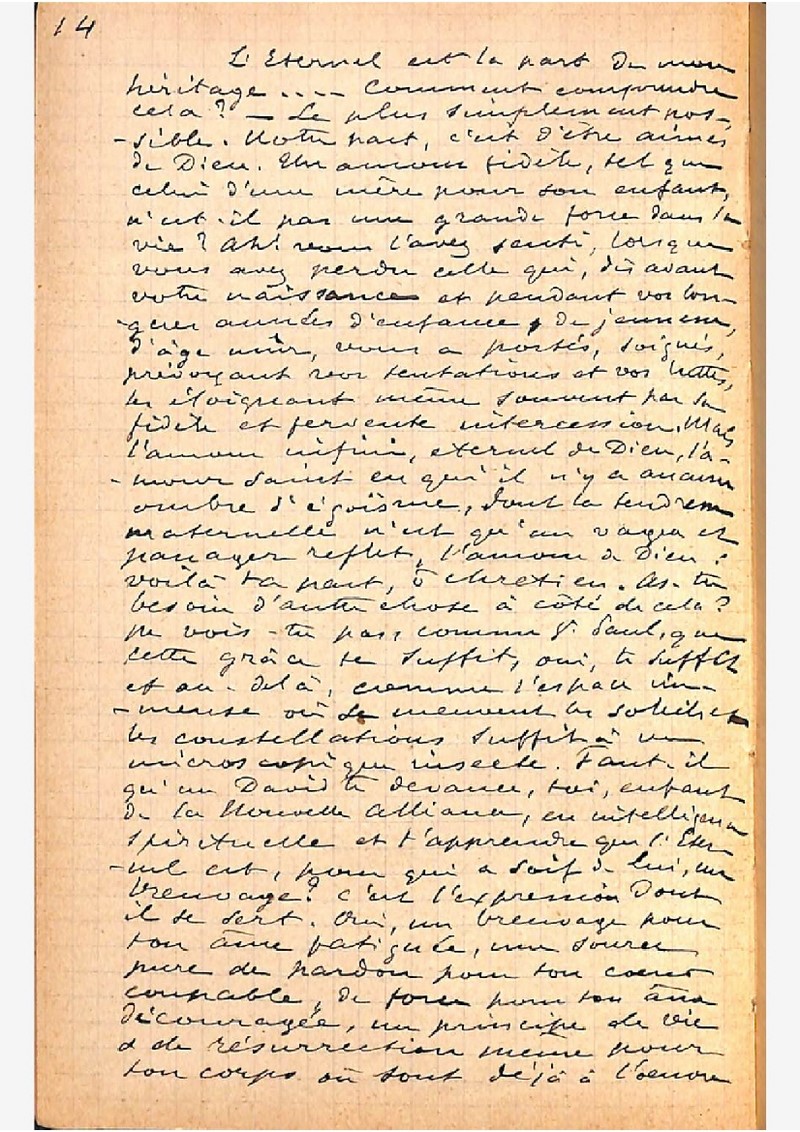 14
L'Eternel est la part de mon
héritage .... Comment comprendre
cela ? — Le plus simplement pos-
-sible. Notre part, c'est d'être aimés
de Dieu. Un amour fidèle, tel que
celui d'une mère pour son enfant,
n'est-il pas une grande force dans la
vie ? Ah! vous l'avez senti, lorsque
vous avez perdu celle qui, dès avant
votre naissance et pendant vos lon-
-gues années d'enfance, de jeunesse,
d'âge mûr, vous a portés, soignés,
prévoyant vos tentations et vos luttes,
les éloignant même souvent par sa
fidèle et fervente intercession. Mais
l'amour infini, éternel de Dieu, l'a-
-mour saint en qui il n'y a aucune
ombre d'égoïsme, dont la tendresse
maternelle n'est qu'un vague et
passager reflet, l'amour de Dieu :
voilà ta part, ô chrétien. As-tu
besoin d'autre chose à côté de cela ?
ne vois-tu pas, comme St Paul, que
cette grâce te suffit, oui, te suffit
et au-delà, comme l'espace im-
-mense où se meuvent les soleils et
les constellations suffit à un
microscopique insecte. Faut-il
qu'un David te devance, toi, enfant
de la Nouvelle Alliance, en intelligence
spirituelle et t'apprendre que l'Eter-
-nel est, pour qui a soif de Lui, un
breuvage ? c'est l'expression dont
il se sert. Oui, un breuvage pour
ton âme fatiguée, une source
pure de pardon pour ton coeur
coupable, de force pour ton âme
découragée, un principe de vie
& de résurrection même pour
ton corps où sont déjà à l'oeuvre